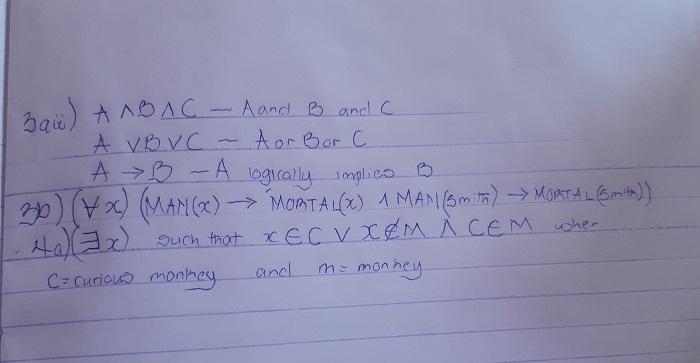 3aii) A ∧ B ∧ C – A and B and C
A ∨ B ∨ C – A or B or C
A → B – A logically implies B
3b) (∀x) (MAN(x) → MORTAL(x) ∧ MAN(Smith) → MORTAL(Smith))
4a) (∃x) such that x ∈ C ∨ x ∉ M ∧ C ∈ M wher
C = curious monkey and m = monkey